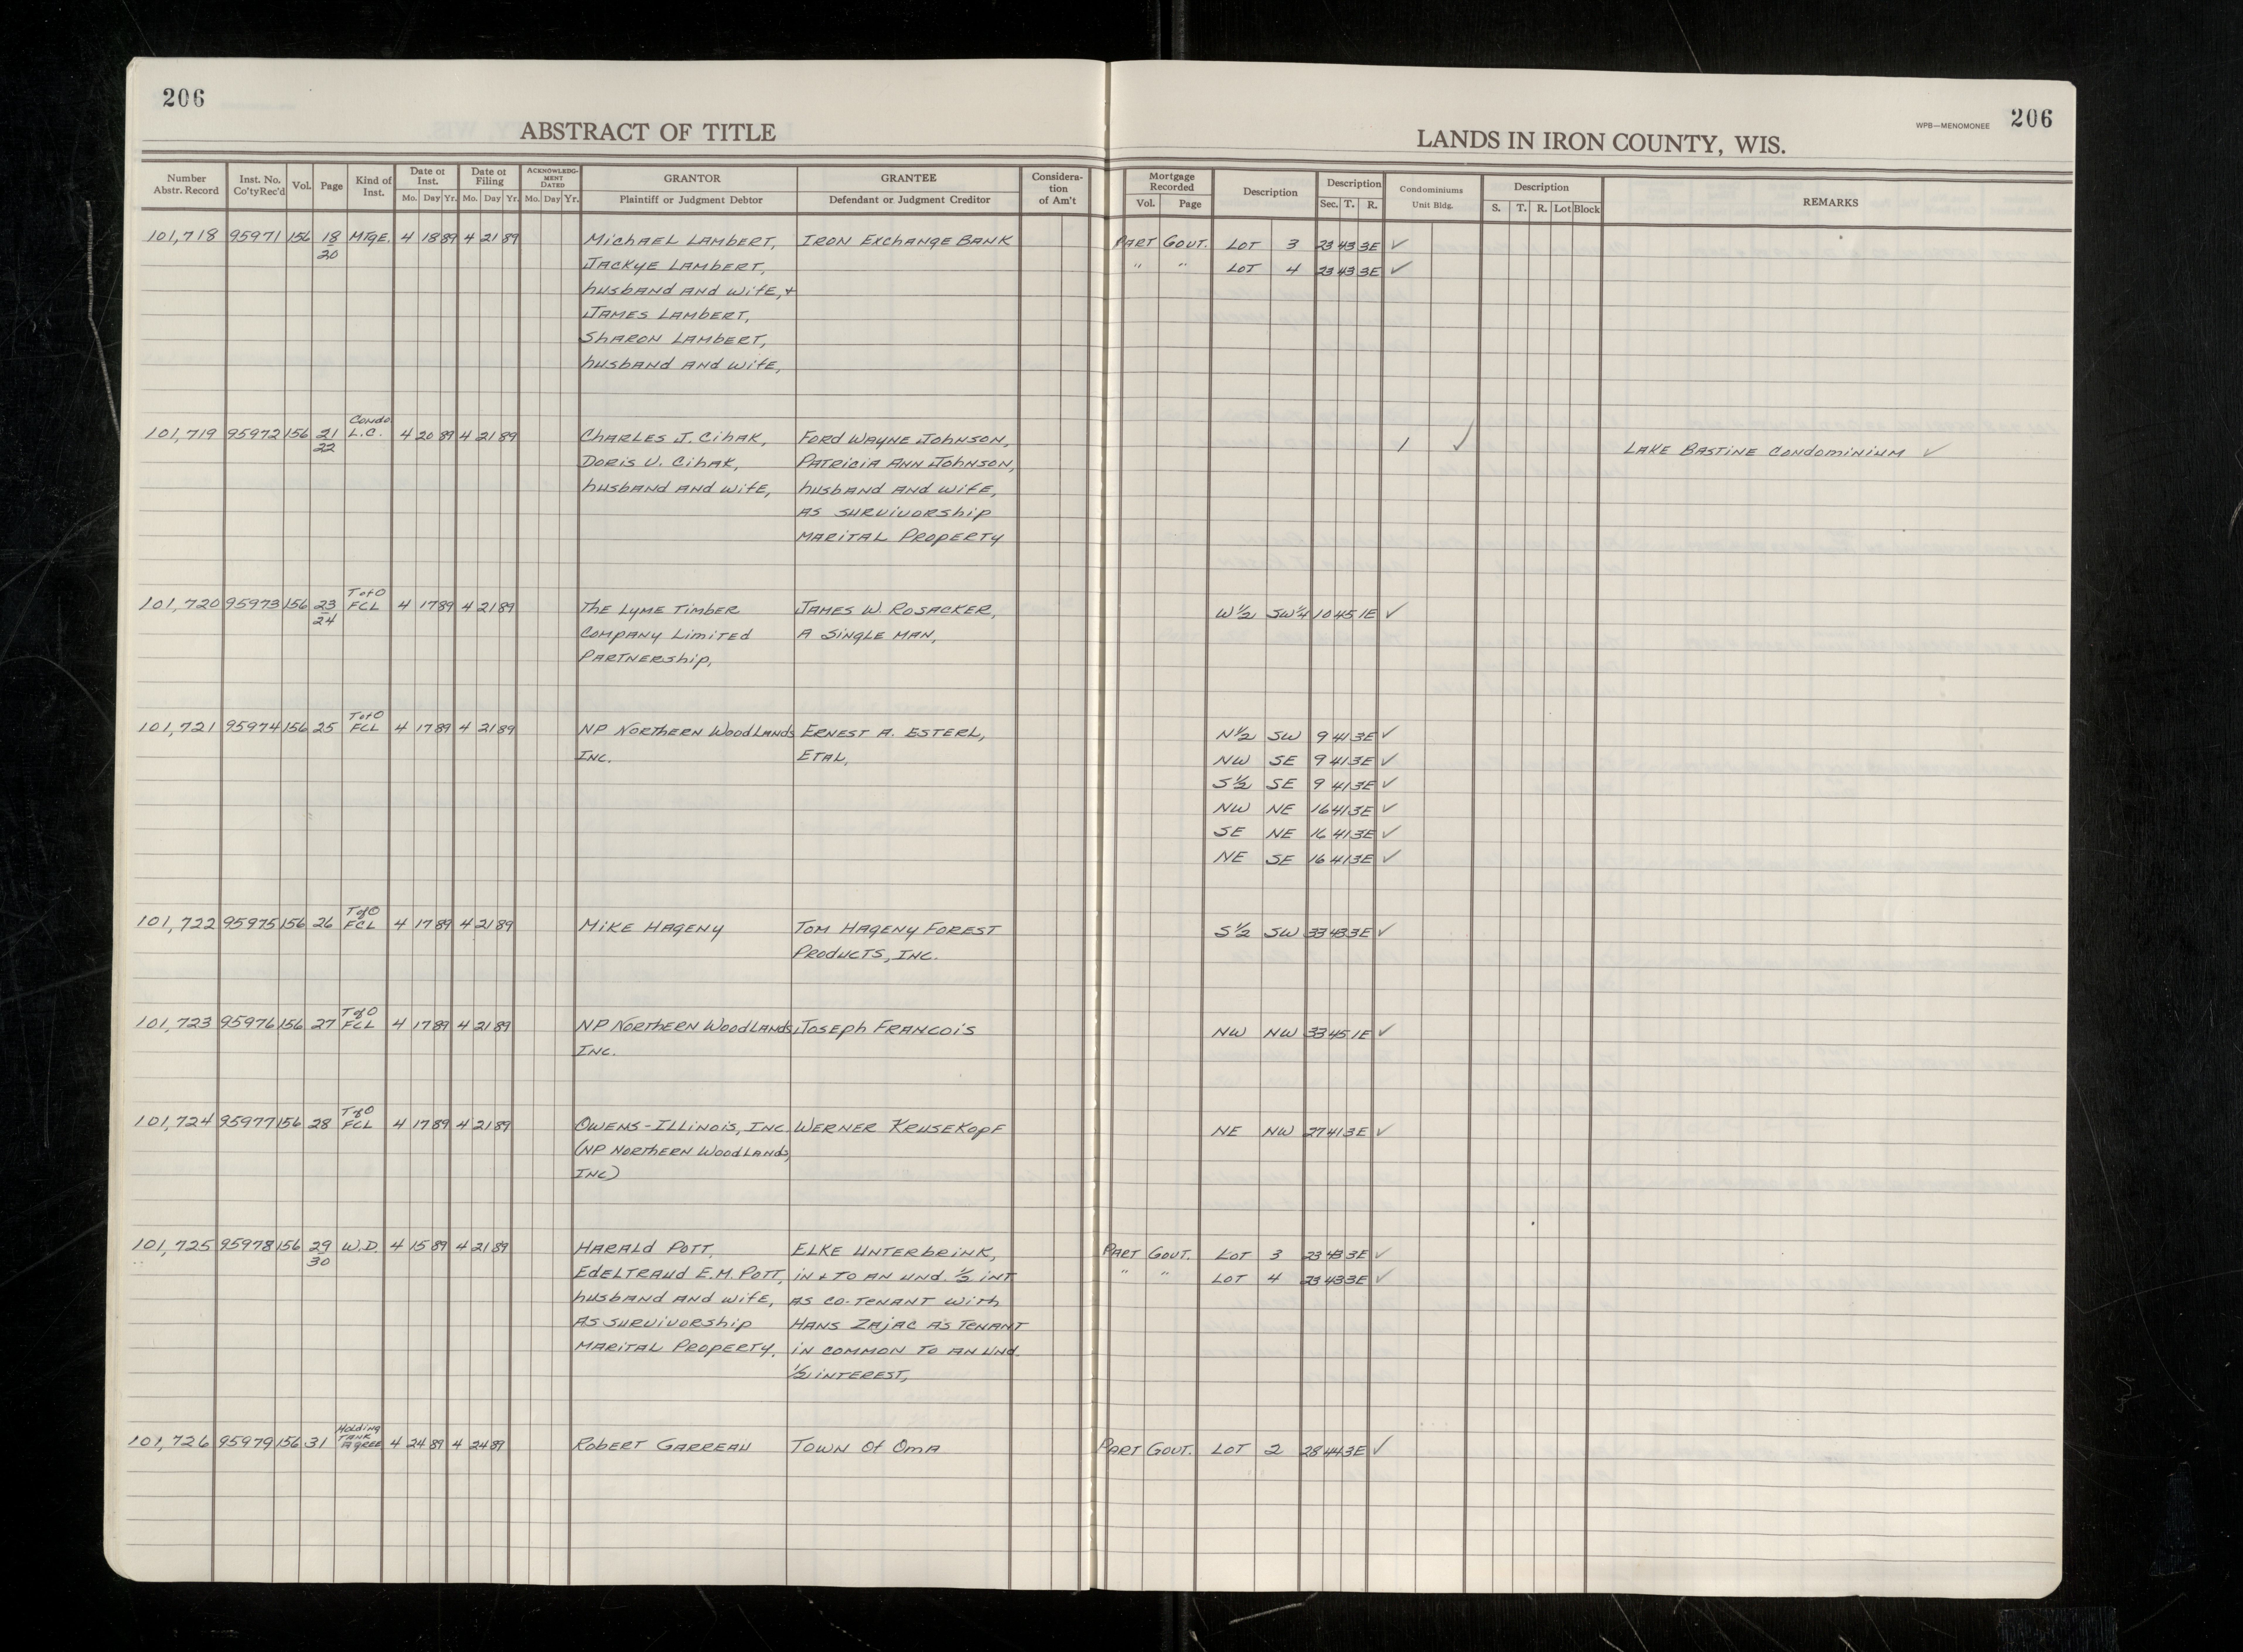 206
ABSTRACT OF TITLE
LANDS IN IRON COUNTY, WIS.
WPB—MENOMONEE 206
Number Abstr. Record | Inst. No. Co'ty Rec'd | Vol. | Page | Kind of Inst. | Date of Inst. Mo. Day Yr. | Date of Filing Mo. Day Yr. | ACKNOWLEDGMENT DATED Mo. Day Yr. | GRANTOR Plaintiff or Judgment Debtor | GRANTEE Defendant or Judgment Creditor | Consideration of Am't | Mortgage Recorded Vol. Page | Description | Description Sec. T. R. | Condominiums Unit Bldg. | Description S. T. R. Lot Block | REMARKS
101,718 95971 156 18 MTGE. 4 18 89 4 21 89 Michael Lambert, Iron Exchange Bank Part Govt. Lot 3 23 43 3E ✓
20 Jackye Lambert, " " Lot 4 23 43 3E ✓
husband and wife, +
James Lambert,
Sharon Lambert,
husband and wife,
Condo
101,719 95972 156 21 L.C. 4 20 89 4 21 89 Charles J. Cihak, Ford Wayne Johnson, 1 ✓ Lake Bastine Condominium ✓
22 Doris V. Cihak, Patricia Ann Johnson,
husband and wife, husband and wife,
as survivorship
marital property
T of O
101,720 95973 156 23 FCL 4 17 89 4 21 89 The Lyme Timber James W. Rosacker, W½ SW¼ 10 45 1E ✓
24 Company Limited a single man,
Partnership,
T of O
101,721 95974 156 25 FCL 4 17 89 4 21 89 NP Northern Woodlands Ernest A. Esterl, N½ SW 9 41 3E ✓
Inc. Etal, NW SE 9 41 3E ✓
S½ SE 9 41 3E ✓
NW NE 16 41 3E ✓
SE NE 16 41 3E ✓
NE SE 16 41 3E ✓
T of O
101,722 95975 156 26 FCL 4 17 89 4 21 89 Mike Hageny Tom Hageny Forest S½ SW 33 43 3E ✓
Products, Inc.
T of O
101,723 95976 156 27 FCL 4 17 89 4 21 89 NP Northern Woodlands, Joseph Francois NW NW 33 45 1E ✓
Inc.
T of O
101,724 95977 156 28 FCL 4 17 89 4 21 89 Owens-Illinois, Inc. Werner Krusekopf NE NW 27 41 3E ✓
(NP Northern Woodlands,
Inc)
101,725 95978 156 29 W.D. 4 15 89 4 21 89 Harald Pott, Elke Unterbrink, Part Govt. Lot 3 23 43 3E ✓
30 Edeltraud E.M. Pott, in + to an und. ½ int " " Lot 4 23 43 3E ✓
husband and wife, as co-tenant with
as survivorship Hans Zajac as tenant
marital property, in common to an und.
½ interest,
Holding
Tank
101,726 95979 156 31 Agree 4 24 89 4 24 89 Robert Garreau Town of Oma Part Govt. Lot 2 28 44 3E ✓